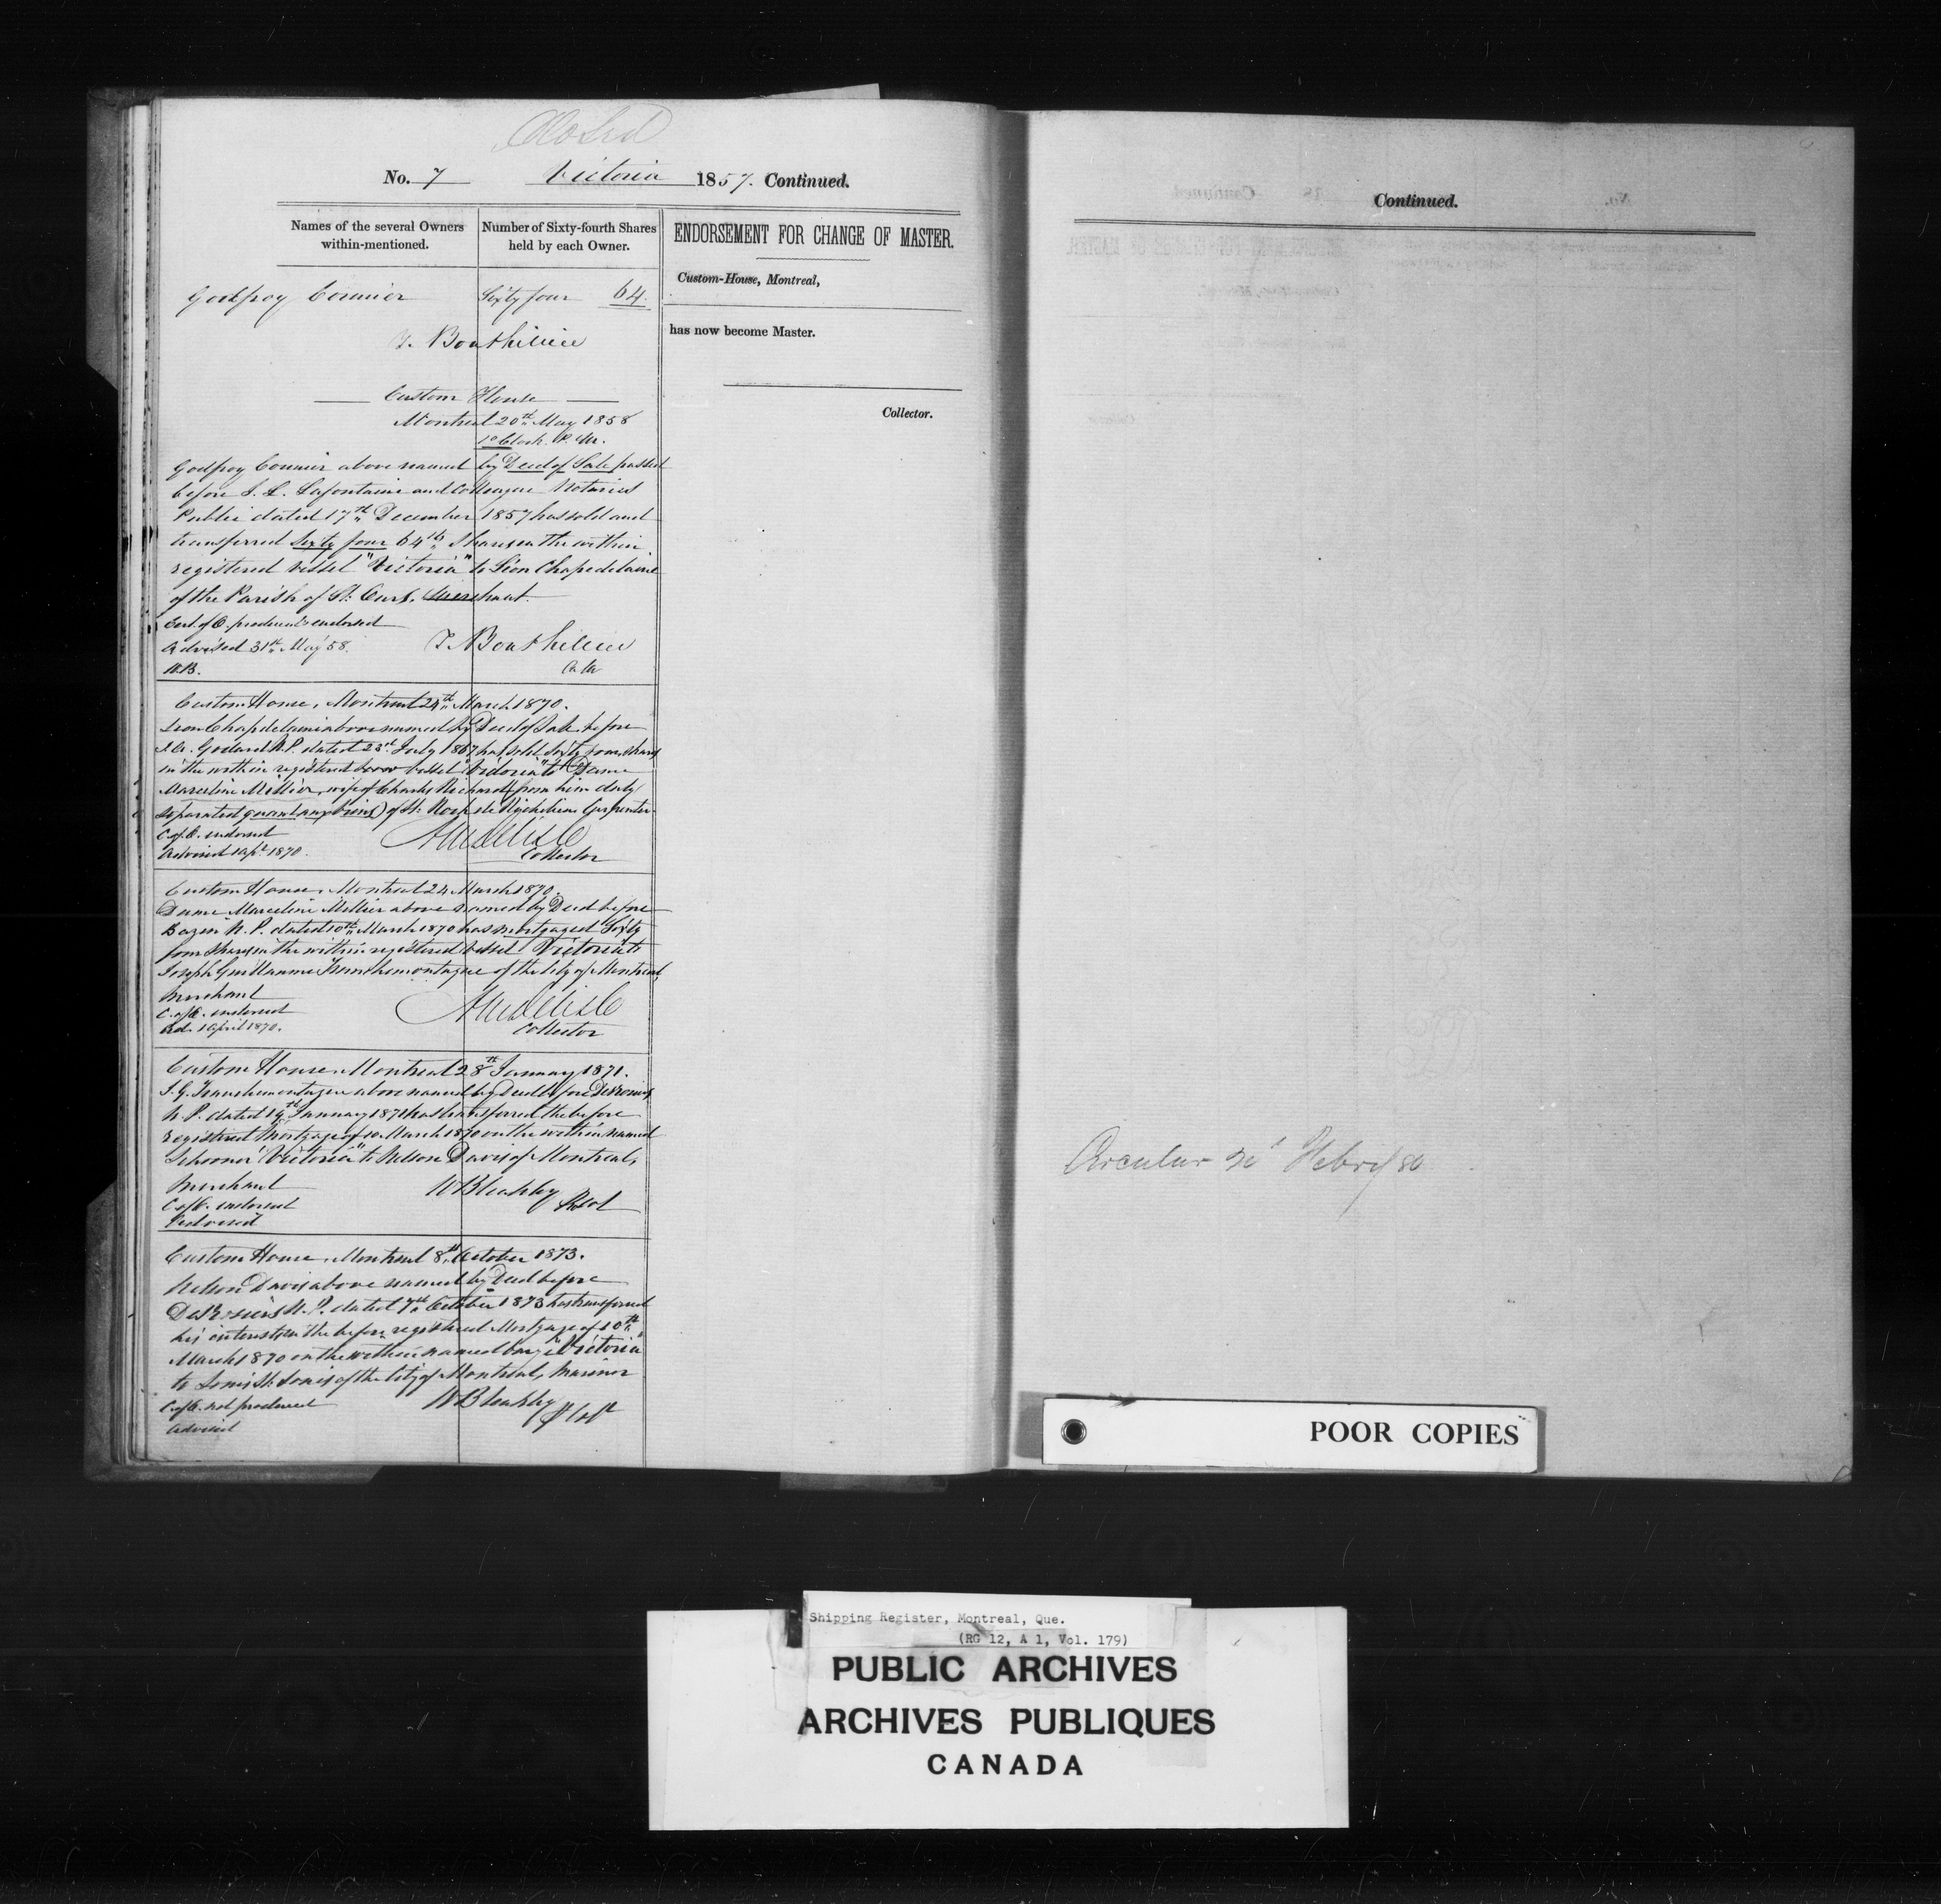 Closed
No. 7 Victoria 1857. Continued.
Names of the several Owners within-mentioned.
Number of Sixty-fourth Shares held by each Owner.
Godfroy Cormier Sixty four 64.
T. Bouthillier
Custom House
Montreal 20th May 1858
1 o'Clock. P.M.
Godfroy Cormier above named by Deed of Sale passed
before J. L. Lafontaine and Colleague Notaries
Public dated 17th December 1857 has sold and
transferred Sixty four 64ths Shares in the within
registered vessel "Victoria" to Léon Chapedelaine
of the Parish of St. Ours. Merchant.
Cert. of O. produced & endorsed
Advised 31st May 58. T. Bouthillier
W.B.
Custom House, Montreal 24th March 1870.
Leon Chapdelaine above named by Deed of Sale before
Godard N.P. dated 23rd July 1867 has sold Sixty four shares
in the within registered vessel "Victoria" to Dame
Marceline Millier, wife of Charles Richard (from him duly
separated quant aux biens) of St. Roch de Richelieu Carpenter
C. of O. endorsed
Advised 1 Apl. 1870. Delisle
Collector
Custom House, Montreal 24 March 1870.
Dame Marceline Millier above named by Deed before
Bazin N.P. dated 10th March 1870 has mortgaged Sixty
four Shares in the within registered vessel "Victoria" to
Joseph Guillaume Transhemontagne of the City of Montreal,
Merchant
C. of O. endorsed Delisle
Ad. 1 April 1870. Collector
Custom House, Montreal 28th January 1871.
J. G. Transhemontagne above named by Deed before DesRosiers
N.P. dated 19th January 1871 has transferred the before
registered Mortgage of 10 March 1870 on the within named
Schooner "Victoria" to Nelson Davis of Montreal,
Merchant
C. of O. endorsed
Advised
Custom House, Montreal 8th October 1873.
Nelson Davis above named by Deed before
DesRosiers N.P. dated 7th October 1873 has transferred
his interest in the before registered Mortgage of 10th
March 1870 on the within named barge "Victoria"
to Louis St. Louis of the City of Montreal, Mariner
C. of O. not produced
Advised
ENDORSEMENT FOR CHANGE OF MASTER.
Custom-House, Montreal,
has now become Master.
Collector.
Continued.
Circular
POOR COPIES
Shipping Register, Montreal, Que.
(RG 12, A 1, Vol. 179)
PUBLIC ARCHIVES
ARCHIVES PUBLIQUES
CANADA